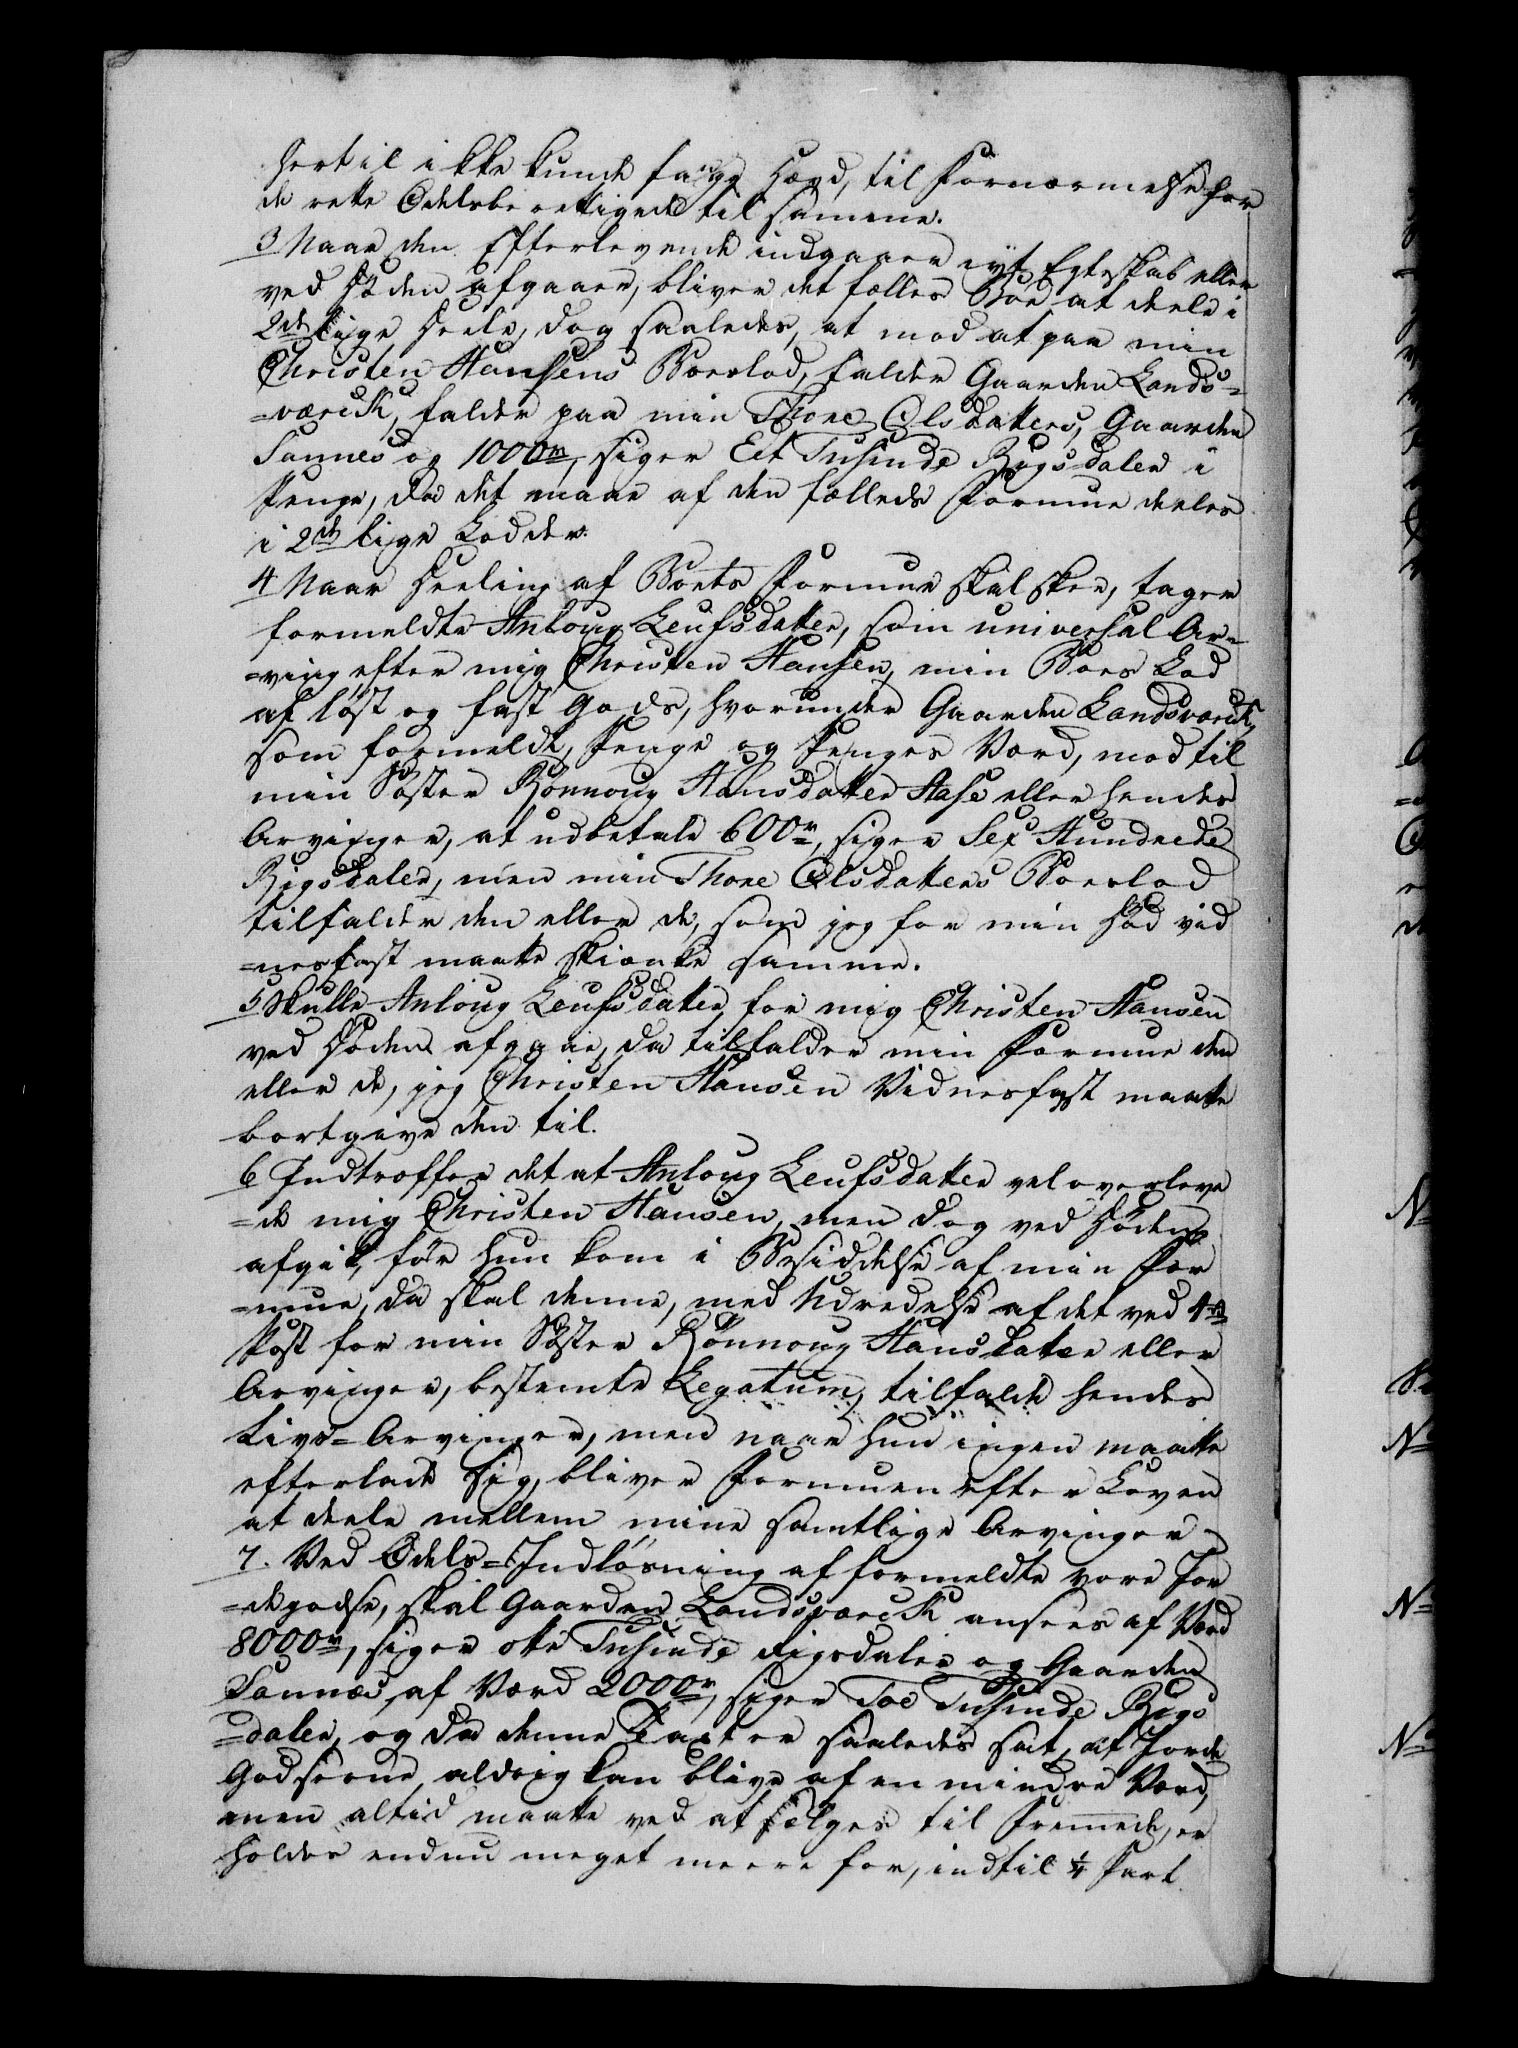 hertil ikke kunde faae Hævd, til Fornærmelse for
de rette Odelsberettigede til samme.
3 Naar den Efterlevende indgaaer nyt Egteskab eller
ved Døden afgaaer, bliver det fælles Boe at deele i
2de lige Deele, dog saaledes, at mod at paa min
Christen Hansens Boeslod, falder Gaarden Lands-
=værck, falder paa min Thore Olsdatters, Gaarden
Sannes og 1000rd, siger Eet Tusinde Rigsdaler i
Penge, da det meere af den fælleds Formue deeles
i 2de lige Lodder.
4 Naar Deeling af Boets Formue skal skee, tager
formeldte Anloug Leufsdatter, som universal Ar-
=ving efter mig Christen Hansen, min Boes Lod
af løst og fast Gods, hvorunder Gaarden Landsværck,
som formeldt, Penge og Penges Værd, mod til
min Søster Rønnoug Hansdatter Aase eller hendes
Arvinger, at udbetale 600rd, siger Sex Hundrede
Rigsdaler, men min Thore Olsdatters Boeslod
tilfalder den eller de, som jeg for min Død vid
=nesfast maatte skiænke samme.
5 Skulle Anloug Leufsdatter for mig Christen Hansen
ved Døden afgaae, da tilfalder min Formue den
eller de, jeg Christen Hansen Vidnesfast maatte
bortgive den til.
6 Indtreffer det at Anloug Leufsdatter vel overleve
=de mig Christen Hansen, men dog ved Døden
afgik, før hun kom i Besiddelse af min For
=mue, da skal denne, med Udredelse af det ved 4de
Post for min Søster Rønnoug Hansdatter eller
Arvinger, bestemte Legatum, tilfalde hendes
Livs=Arvinger, men naar hun ingen maatte
efterlade sig, bliver Formuen efter Loven
at deele mellem mine samtlige Arvinger
7. Ved Odels=Indløsning af formeldte vore Jor
=degodse, skal Gaarden Landsværck ansees af Værd
8000rd, siger otte Tusinde Rigsdaler og Gaarden
Sannes af Værd 2000rd, siger Toe Tusinde Rigs
=daler, og da denne Taxt er saaledes sat, at Jorde
Godserne aldrig kan blive af en mindre Værd,
men altid maatte ved at sælges til Fremmede, er
holdes endnu meget meere for, indtil 1/4 Part